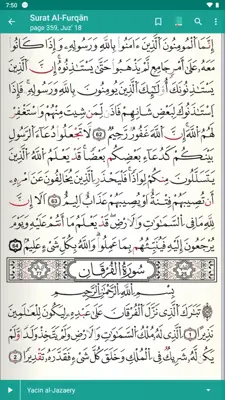 7:50
Surat Al-Furqān
page 359, Juz' 18
إِنَّمَا ٱلْمُؤْمِنُونَ ٱلَّذِينَ ءَامَنُوا۟ بِٱللَّهِ وَرَسُولِهِۦ وَإِذَا كَانُوا۟
مَعَهُۥ عَلَىٰٓ أَمْرٍ جَامِعٍ لَّمْ يَذْهَبُوا۟ حَتَّىٰ يَسْتَـْٔذِنُوهُ إِنَّ ٱلَّذِينَ
يَسْتَـْٔذِنُونَكَ أُو۟لَٰٓئِكَ ٱلَّذِينَ يُؤْمِنُونَ بِٱللَّهِ وَرَسُولِهِۦ
فَإِذَا ٱسْتَـْٔذَنُوكَ لِبَعْضِ شَأْنِهِمْ فَأْذَن لِّمَن شِئْتَ مِنْهُمْ وَٱسْتَغْفِرْ
لَهُمُ ٱللَّهَ إِنَّ ٱللَّهَ غَفُورٌ رَّحِيمٌ ٦٢ لَّا تَجْعَلُوا۟ دُعَآءَ ٱلرَّسُولِ
بَيْنَكُمْ كَدُعَآءِ بَعْضِكُم بَعْضًا قَدْ يَعْلَمُ ٱللَّهُ ٱلَّذِينَ
يَتَسَلَّلُونَ مِنكُمْ لِوَاذًا فَلْيَحْذَرِ ٱلَّذِينَ يُخَالِفُونَ عَنْ أَمْرِهِۦٓ
أَن تُصِيبَهُمْ فِتْنَةٌ أَوْ يُصِيبَهُمْ عَذَابٌ أَلِيمٌ ٦٣ أَلَآ إِنَّ
لِلَّهِ مَا فِى ٱلسَّمَٰوَٰتِ وَٱلْأَرْضِ قَدْ يَعْلَمُ مَآ أَنتُمْ عَلَيْهِ وَيَوْمَ
يُرْجَعُونَ إِلَيْهِ فَيُنَبِّئُهُم بِمَا عَمِلُوا۟ وَٱللَّهُ بِكُلِّ شَىْءٍ عَلِيمٌ ٦٤
سُورَةُ الْفُرْقَانِ
بِسْمِ ٱللَّهِ ٱلرَّحْمَٰنِ ٱلرَّحِيمِ
تَبَارَكَ ٱلَّذِى نَزَّلَ ٱلْفُرْقَانَ عَلَىٰ عَبْدِهِۦ لِيَكُونَ لِلْعَٰلَمِينَ
نَذِيرًا ١ ٱلَّذِى لَهُۥ مُلْكُ ٱلسَّمَٰوَٰتِ وَٱلْأَرْضِ وَلَمْ يَتَّخِذْ وَلَدًا
وَلَمْ يَكُن لَّهُۥ شَرِيكٌ فِى ٱلْمُلْكِ وَخَلَقَ كُلَّ شَىْءٍ فَقَدَّرَهُۥ تَقْدِيرًا ٢
Yacin al-Jazaery